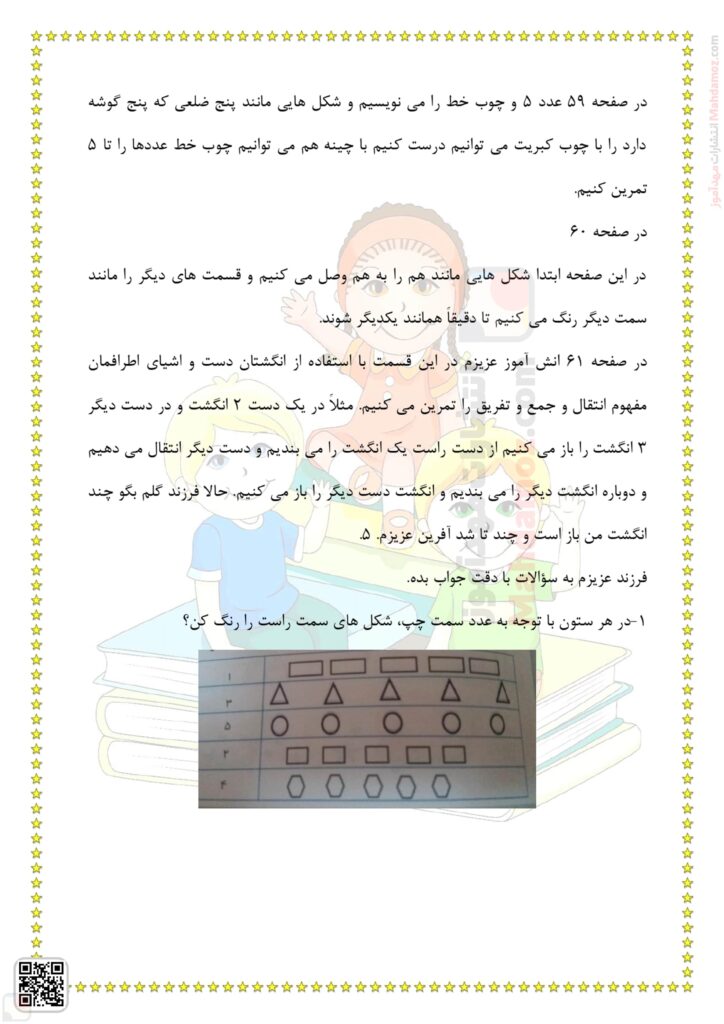 در صفحه ۵۹ عدد ۵ و چوب خط را می نویسیم و شکل هایی مانند پنج ضلعی که پنج گوشه
دارد را با چوب کبریت می توانیم درست کنیم با چینه هم می توانیم چوب خط عددها را تا ۵
تمرین کنیم.
در صفحه ۶۰
در این صفحه ابتدا شکل هایی مانند هم را به هم وصل می کنیم و قسمت های دیگر را مانند
سمت دیگر رنگ می کنیم تا دقیقاً همانند یکدیگر شوند.
در صفحه ۶۱ انش آموز عزیزم در این قسمت با استفاده از انگشتان دست و اشیای اطرافمان
مفهوم انتقال و جمع و تفریق را تمرین می کنیم. مثلاً در یک دست ۲ انگشت و در دست دیگر
۳ انگشت را باز می کنیم از دست راست یک انگشت را می بندیم و دست دیگر انتقال می دهیم
و دوباره انگشت دیگر را می بندیم و انگشت دست دیگر را باز می کنیم. حالا فرزند گلم بگو چند
انگشت من باز است و چند تا شد آفرین عزیزم. ۵.
فرزند عزیزم به سؤالات با دقت جواب بده.
۱-در هر ستون با توجه به عدد سمت چپ، شکل های سمت راست را رنگ کن؟
۱
۳
۵
۲
۴
انتشارات مهدآموز Mahdamoz.com
انتشارات مهدآموز
Mahdamoz.com